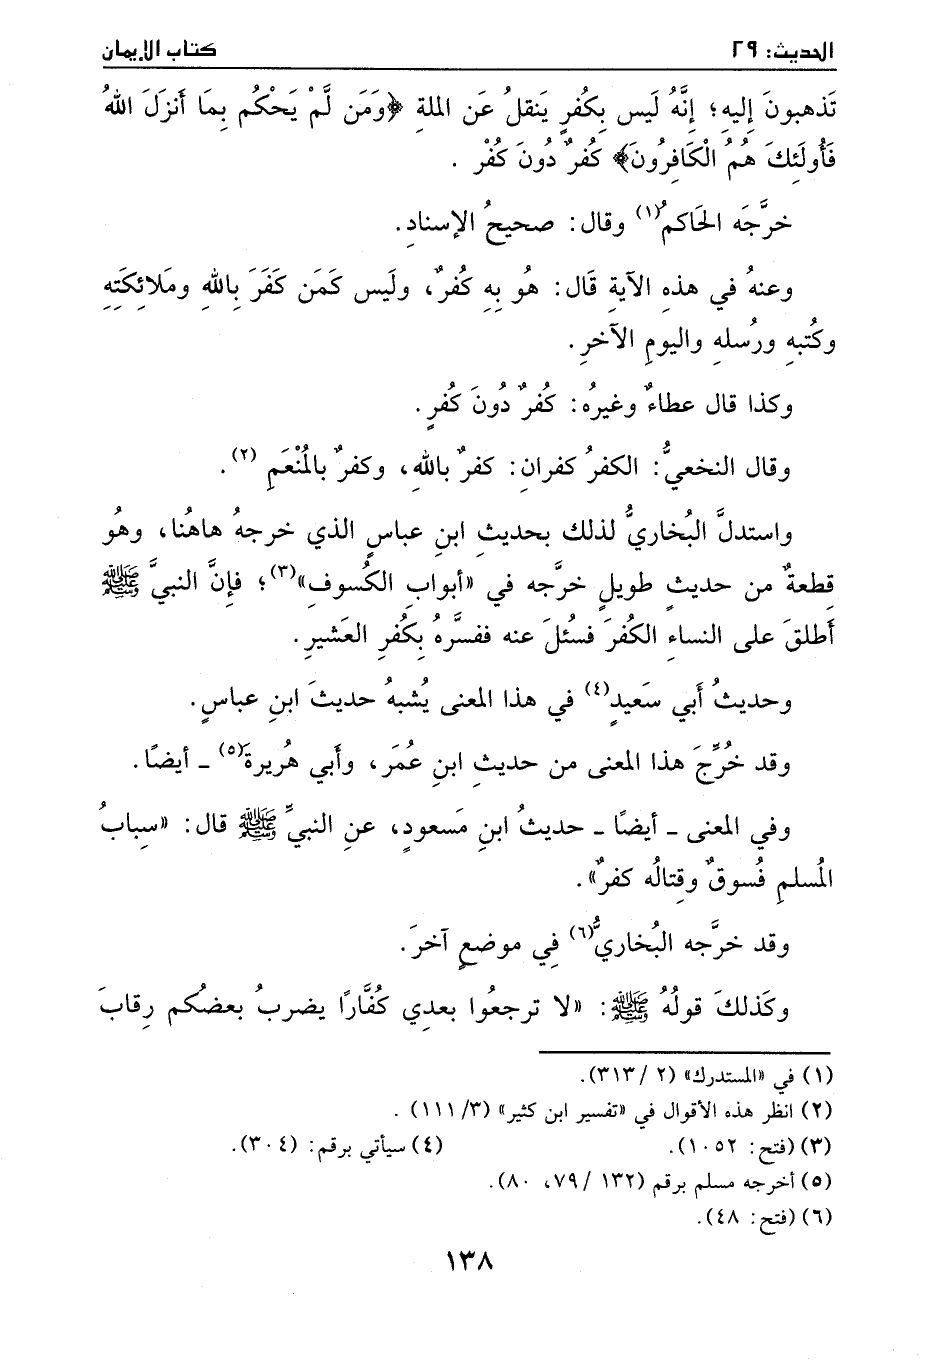 الحديث: ٢٩
كتاب الإيمان
تَذهبونَ إِليهِ؛ إِنَّهُ لَيس بِكُفرٍ يَنقلُ عَن الملةِ ﴿وَمَن لَّمْ يَحْكُم بِمَا أَنزَلَ اللهُ
فَأُولَئِكَ هُمُ الْكَافِرُونَ﴾ كُفرٌ دُونَ كُفْر .
خرَّجَه الحَاكمُ(١) وقال: صحيحُ الإسنادِ.
وعنهُ في هذهِ الآيةِ قَال: هُو بِهِ كُفرٌ، ولَيس كَمَن كَفَرَ بِاللهِ ومَلائِكَتِهِ
وكُتبهِ ورُسلهِ واليومِ الآخرِ.
وكذا قال عطاءٌ وغيرُه: كُفرٌ دُونَ كُفرٍ.
وقال النخعيُّ: الكفرُ كفرانِ: كفرٌ باللهِ، وكفرٌ بالمُنْعَمِ (٢).
واستدلَّ البُخاريُّ لذلك بحديثِ ابنِ عباسٍ الذي خرجهُ هاهُنا، وهُو
قِطعةٌ من حديثٍ طويلٍ خرَّجه في «أبوابِ الكُسوفِ»(٣)؛ فإنَّ النبيَّ ﷺ
أَطلقَ على النساءِ الكُفرَ فسُئلَ عنه ففسَّرهُ بِكُفرِ العَشيرِ.
وحديثُ أَبي سَعيدٍ(٤) في هذا المعنى يُشبهُ حديثَ ابنِ عباسٍ.
وقد خُرِّجَ هذا المعنى من حديثِ ابنِ عُمَرَ، وأَبي هُريرةَ(٥) ـ أيضًا.
وفي المعنى ـ أيضًا ـ حديثُ ابنِ مَسعودٍ، عنِ النبيِّ ﷺ قال: «سِبابُ
المُسلمِ فُسوقٌ وقِتالُه كفرٌ».
وقد خرَّجه البُخاريُّ(٦) فِي موضعٍ آخرَ.
وكَذلكَ قولُهُ ﷺ: «لا ترجعُوا بعدِي كُفَّارًا يضربُ بعضُكم رِقابَ
(١) في «المستدرك» (٢ /٣١٣).
(٢) انظر هذه الأقوال في «تفسير ابن كثير» (٣/ ١١١) .
(٣) (فتح: ١٠٥٢). (٤) سيأتي برقم: (٣٠٤).
(٥) أخرجه مسلم برقم (١٣٢ /٧٩، ٨٠).
(٦) (فتح: ٤٨).
١٣٨